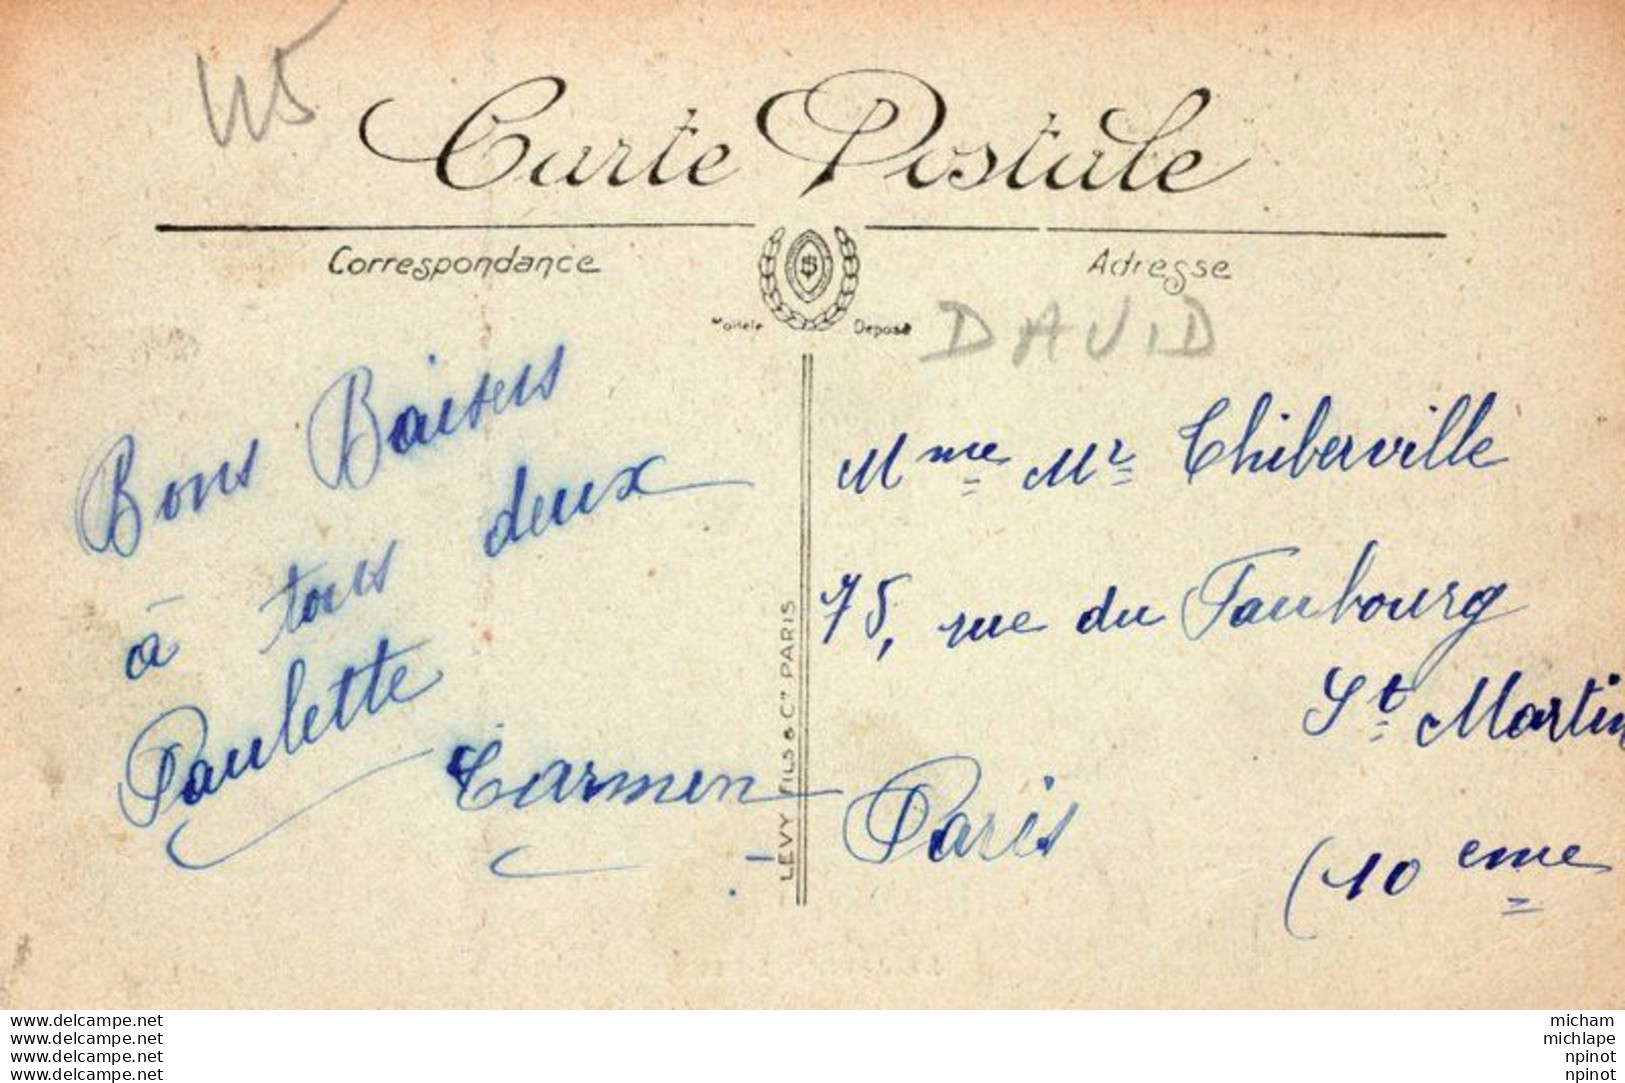 Carte Postale
Correspondance
Adresse
Modèle
Déposé
DAVID
Bons Baisers
à tous deux
Paulette
Carmen
LEVY FILS & Cie PARIS
Mme Mr Thiberville
75, rue du Faubourg
St Martin
Paris
(10 eme
www.delcampe.net
www.delcampe.net
www.delcampe.net
www.delcampe.net
micham
michlape
npinot
npinot